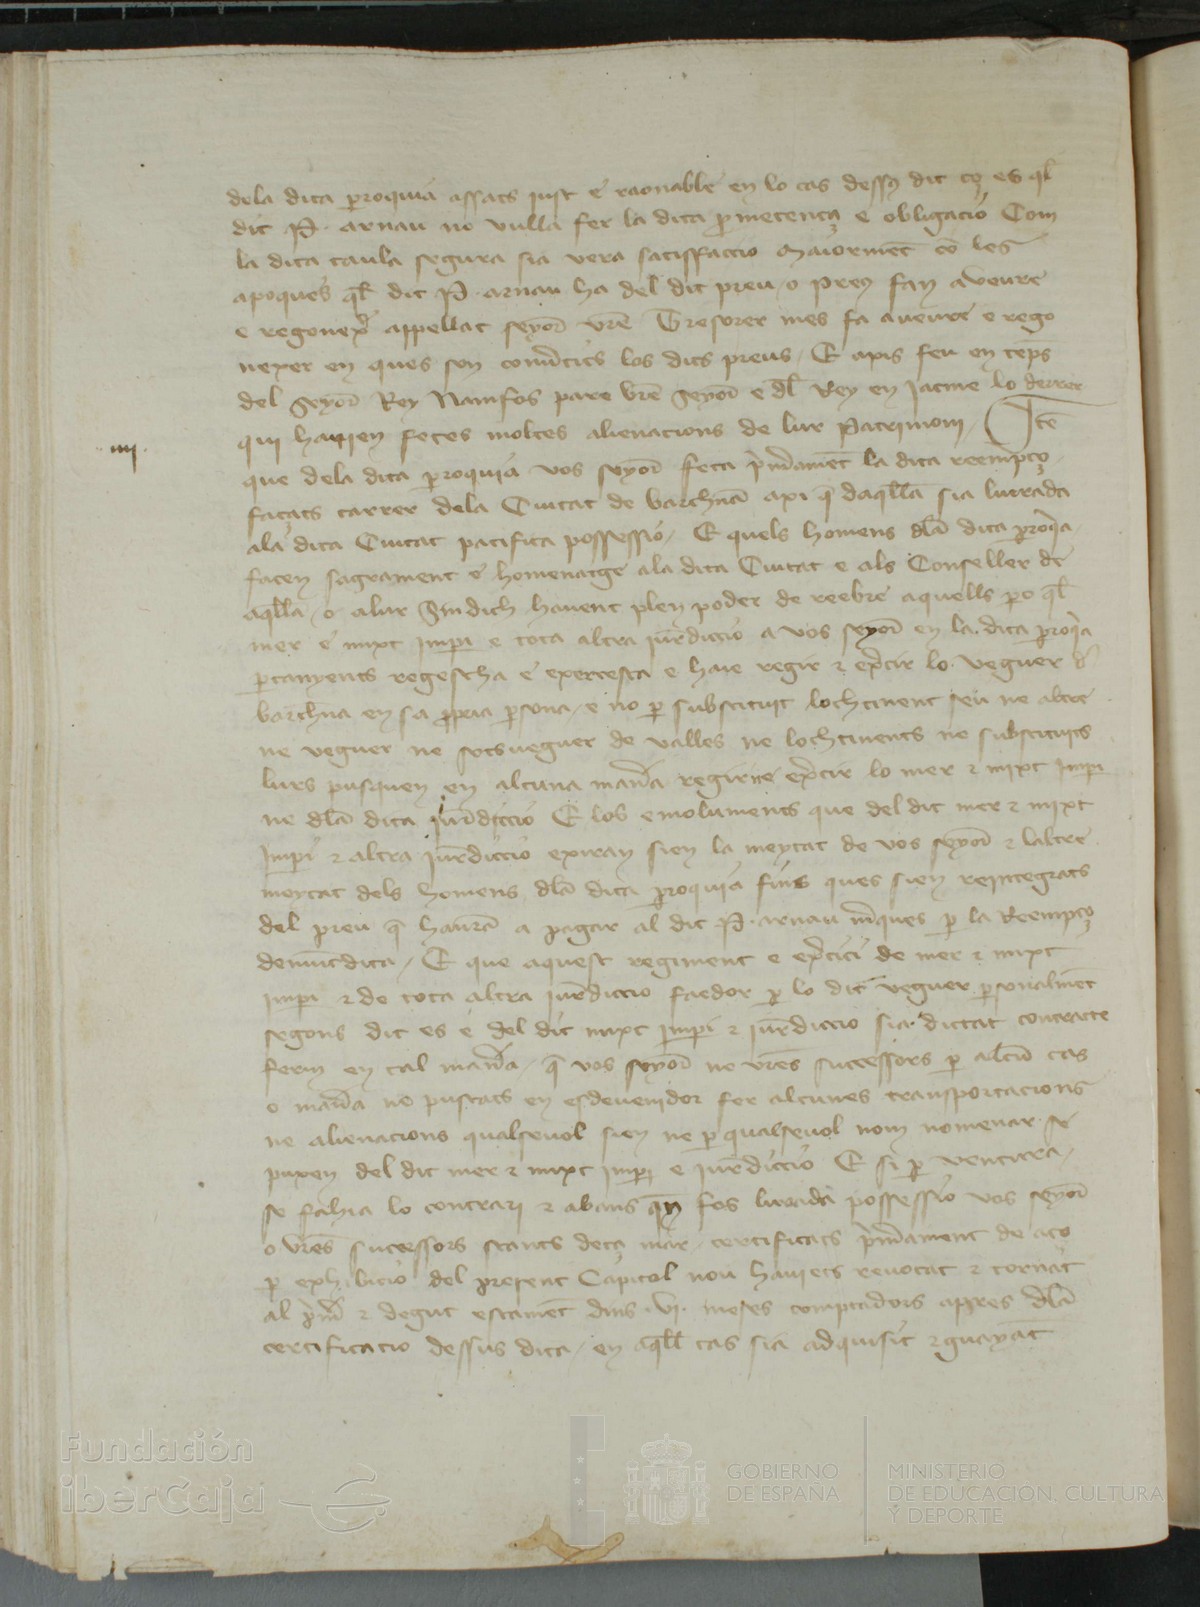 dela dita proquia assats just e raonable en lo cas dessus dit ço es ql
dit P. arnau no vulla fer la dita prometença e obligacio Com
la dita taula segura sia vera satisfaccio Maiorment co les
apoques ql dit P. arnau ha del dit preu o preu fan a veure
e regonexer appellat seyor vre Tresorer mes fa aveure e rego
nexer en ques son conuertits los dits preus / E axis feu en temps
del Seyor Rey Namfos pare vre Seyor e dl Rey en Jacme lo derrer
qui hauien fetes moltes alienacions de lur Patrimoni / Ite
.iiii.
que dela dita proquia vos seyor feta primerament la dita reempço
façats carrer dela Ciutat de barchna axi q daqlla sia liurada
ala dita Ciutat pacifica possessio / E quels homens dla dita proqia
facen sagrament e homenatge ala dita Ciutat e als Conseller de
aqlla / o alur Sindich hauent plen poder de reebre aquells pero ql
mer e mixt Imperi e tota altra jurdiccio a vos seyor en la dita proqia
ptanyents regescha e exercesca e haie regir & exercir lo veguer d
barchna en sa propria psona / e no p substituit lochtinent seu ne altre
ne veguer ne sotsueguer de valles ne lochtinents ne substituits
lurs pusquen en alcuna manera regir ne exercir lo mer & mixt Imperi
ne dla dita jurdiccio E los emoluments que del dit mer & mixt
Imperi & altra jurdiccio exiran sien la meytat de vos seyor & laltre
meytat dels homens dla dita proquia fins ques sien reintegrats
del preu q hauran a pagar al dit P. arnau Marques p la Reempço
demuntdita / E que aquest regiment e exercici de mer & mixt
imperi & de tota altra jurdiccio faedor p lo dit veguer psonalment
segons dit es e del dit mixt imperi & jurdiccio sia dictat contracte
ferm en tal manera / q vos seyor ne vres successors p alcun cas
o manera no puscats en esdeuenidor fer alcunes transportacions
ne alienacions qualseuol sien ne p qualseuol nom nomenar se
puxen del dit mer & mixt imperi e jurdiccio E si p ventura /
se fahia lo contrari & abans qn fos liurada possessio vos seyor
o vres successors stants deça mar / certificats primerament de aço
p exhibicio del present Capitol nou hauiets reuocat & tornat
al primer & degut estament dins .vi. meses comptadors apres dla
certificacio dessus dita / en aqll cas sia adquisit & guayat
Fundación
iberCaja
GOBIERNO
DE ESPAÑA
MINISTERIO
DE EDUCACIÓN, CULTURA
Y DEPORTE